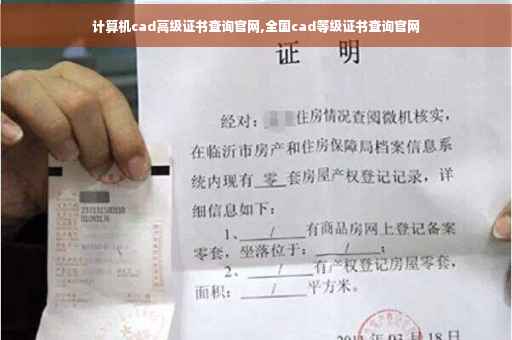 计算机cad高级证书查询官网,全国cad等级证书查询官网
证 明
经对： 住房情况查阅微机核实，
在临沂市房产和住房保障局档案信息系
统内现有 零 套房屋产权登记记录，详
细信息如下：
1、 / 有商品房网上登记备案
零套，坐落位于： / ；
2、 / 有产权登记房屋零套，
面积： / 平方米。
03月18日